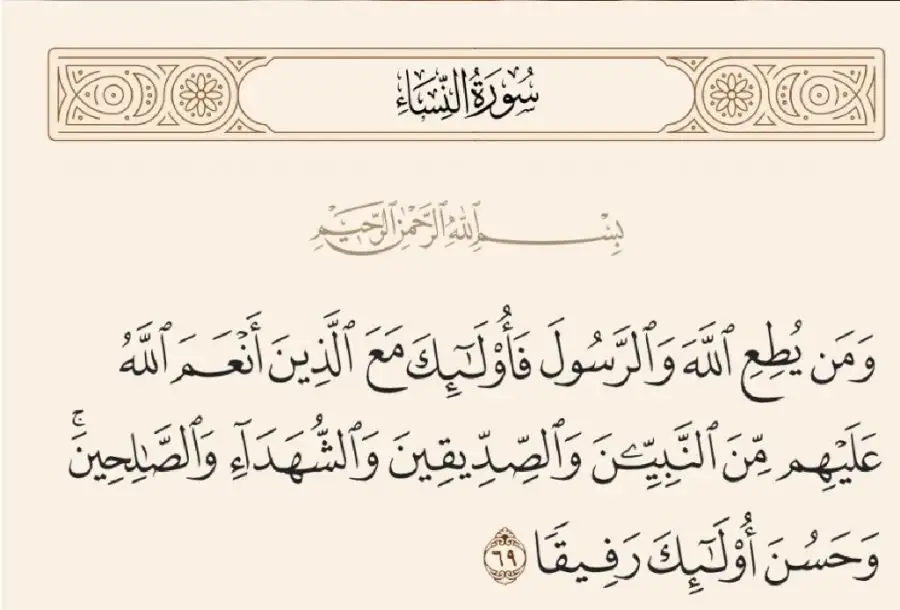 سُورَةُ النِّسَاءِ
بِسْمِ ٱللَّهِ ٱلرَّحْمَٰنِ ٱلرَّحِيمِ
وَمَن يُطِعِ ٱللَّهَ وَٱلرَّسُولَ فَأُوْلَٰٓئِكَ مَعَ ٱلَّذِينَ أَنْعَمَ ٱللَّهُ
عَلَيْهِم مِّنَ ٱلنَّبِيِّـۧنَ وَٱلصِّدِّيقِينَ وَٱلشُّهَدَآءِ وَٱلصَّٰلِحِينَۚ
وَحَسُنَ أُوْلَٰٓئِكَ رَفِيقًا ٦٩